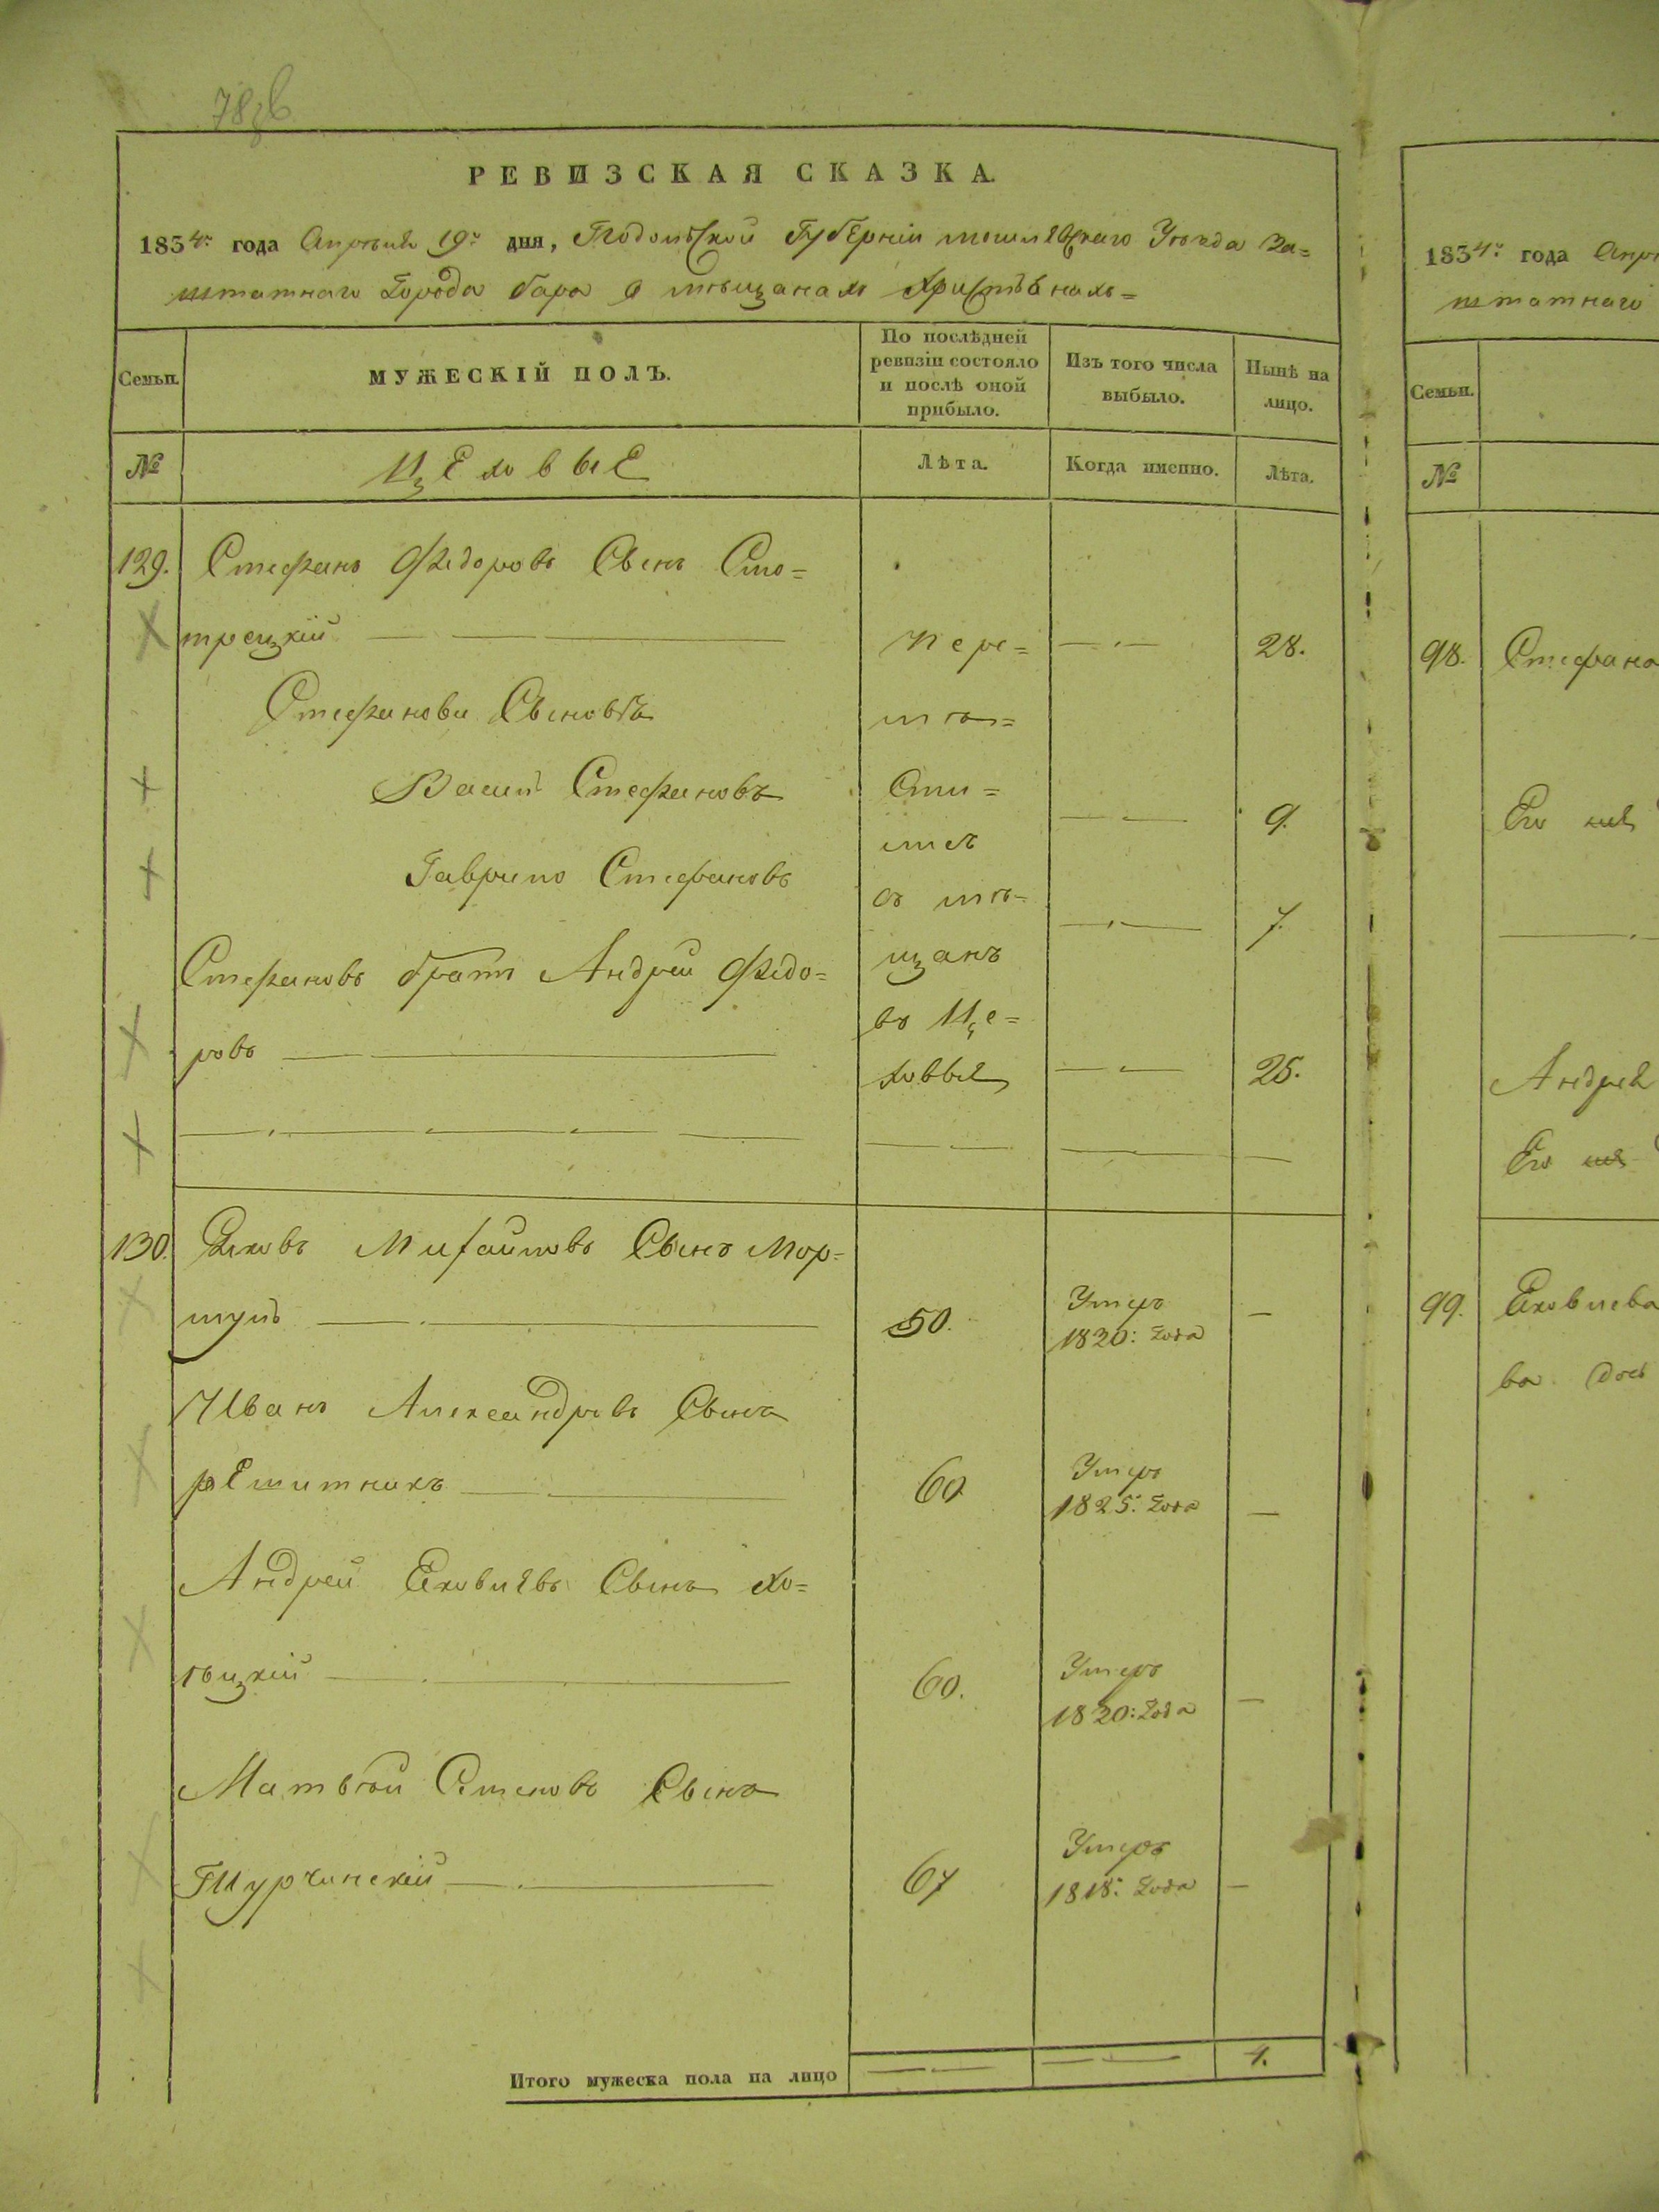 РЕВИЗСКАЯ СКАЗКА.
1834го года Апрѣля 19го дня, Подольской Губерніи Могилевскаго Уѣзда За=
штатнаго Города бара о мѣщанахъ Христьянахъ=
Семьи.
МУЖЕСКІЙ ПОЛЪ.
По послѣдней
ревизіи состояло
и послѣ оной
прибыло.
Изъ того числа
выбыло.
Нынѣ на
лицо.
№
Цеховые
Лѣта.
Когда именно.
Лѣта.
129. Стефанъ Федоровъ Сынъ Смо=
трецкій пере= 28.
Стефанови Сыновья мѣ=
Василь Стефановъ сти= 9.
лись
Гаврило Стефановъ съ мѣ= 7.
Стефановъ братъ Андрей Федо= щанъ
въ Це=
ровъ ховые 25.
130. Яковъ Михайловъ Сынъ Мор=
50. Умеръ
1820: года
Иванъ Александровъ Сынъ
решитникъ 60 Умеръ
1825: года
Андрей Яковлевъ Сынъ
60. Умеръ
1820: года
Матвѣй Семеновъ Сынъ
Турчинскій 67 Умеръ
1818: года
Итого мужеска пола на лицо 4.
1834го года
штатнаго
Семьи.
№
98. Стефана
Его
Андрея
Его
99. Яковлева
ва дочь